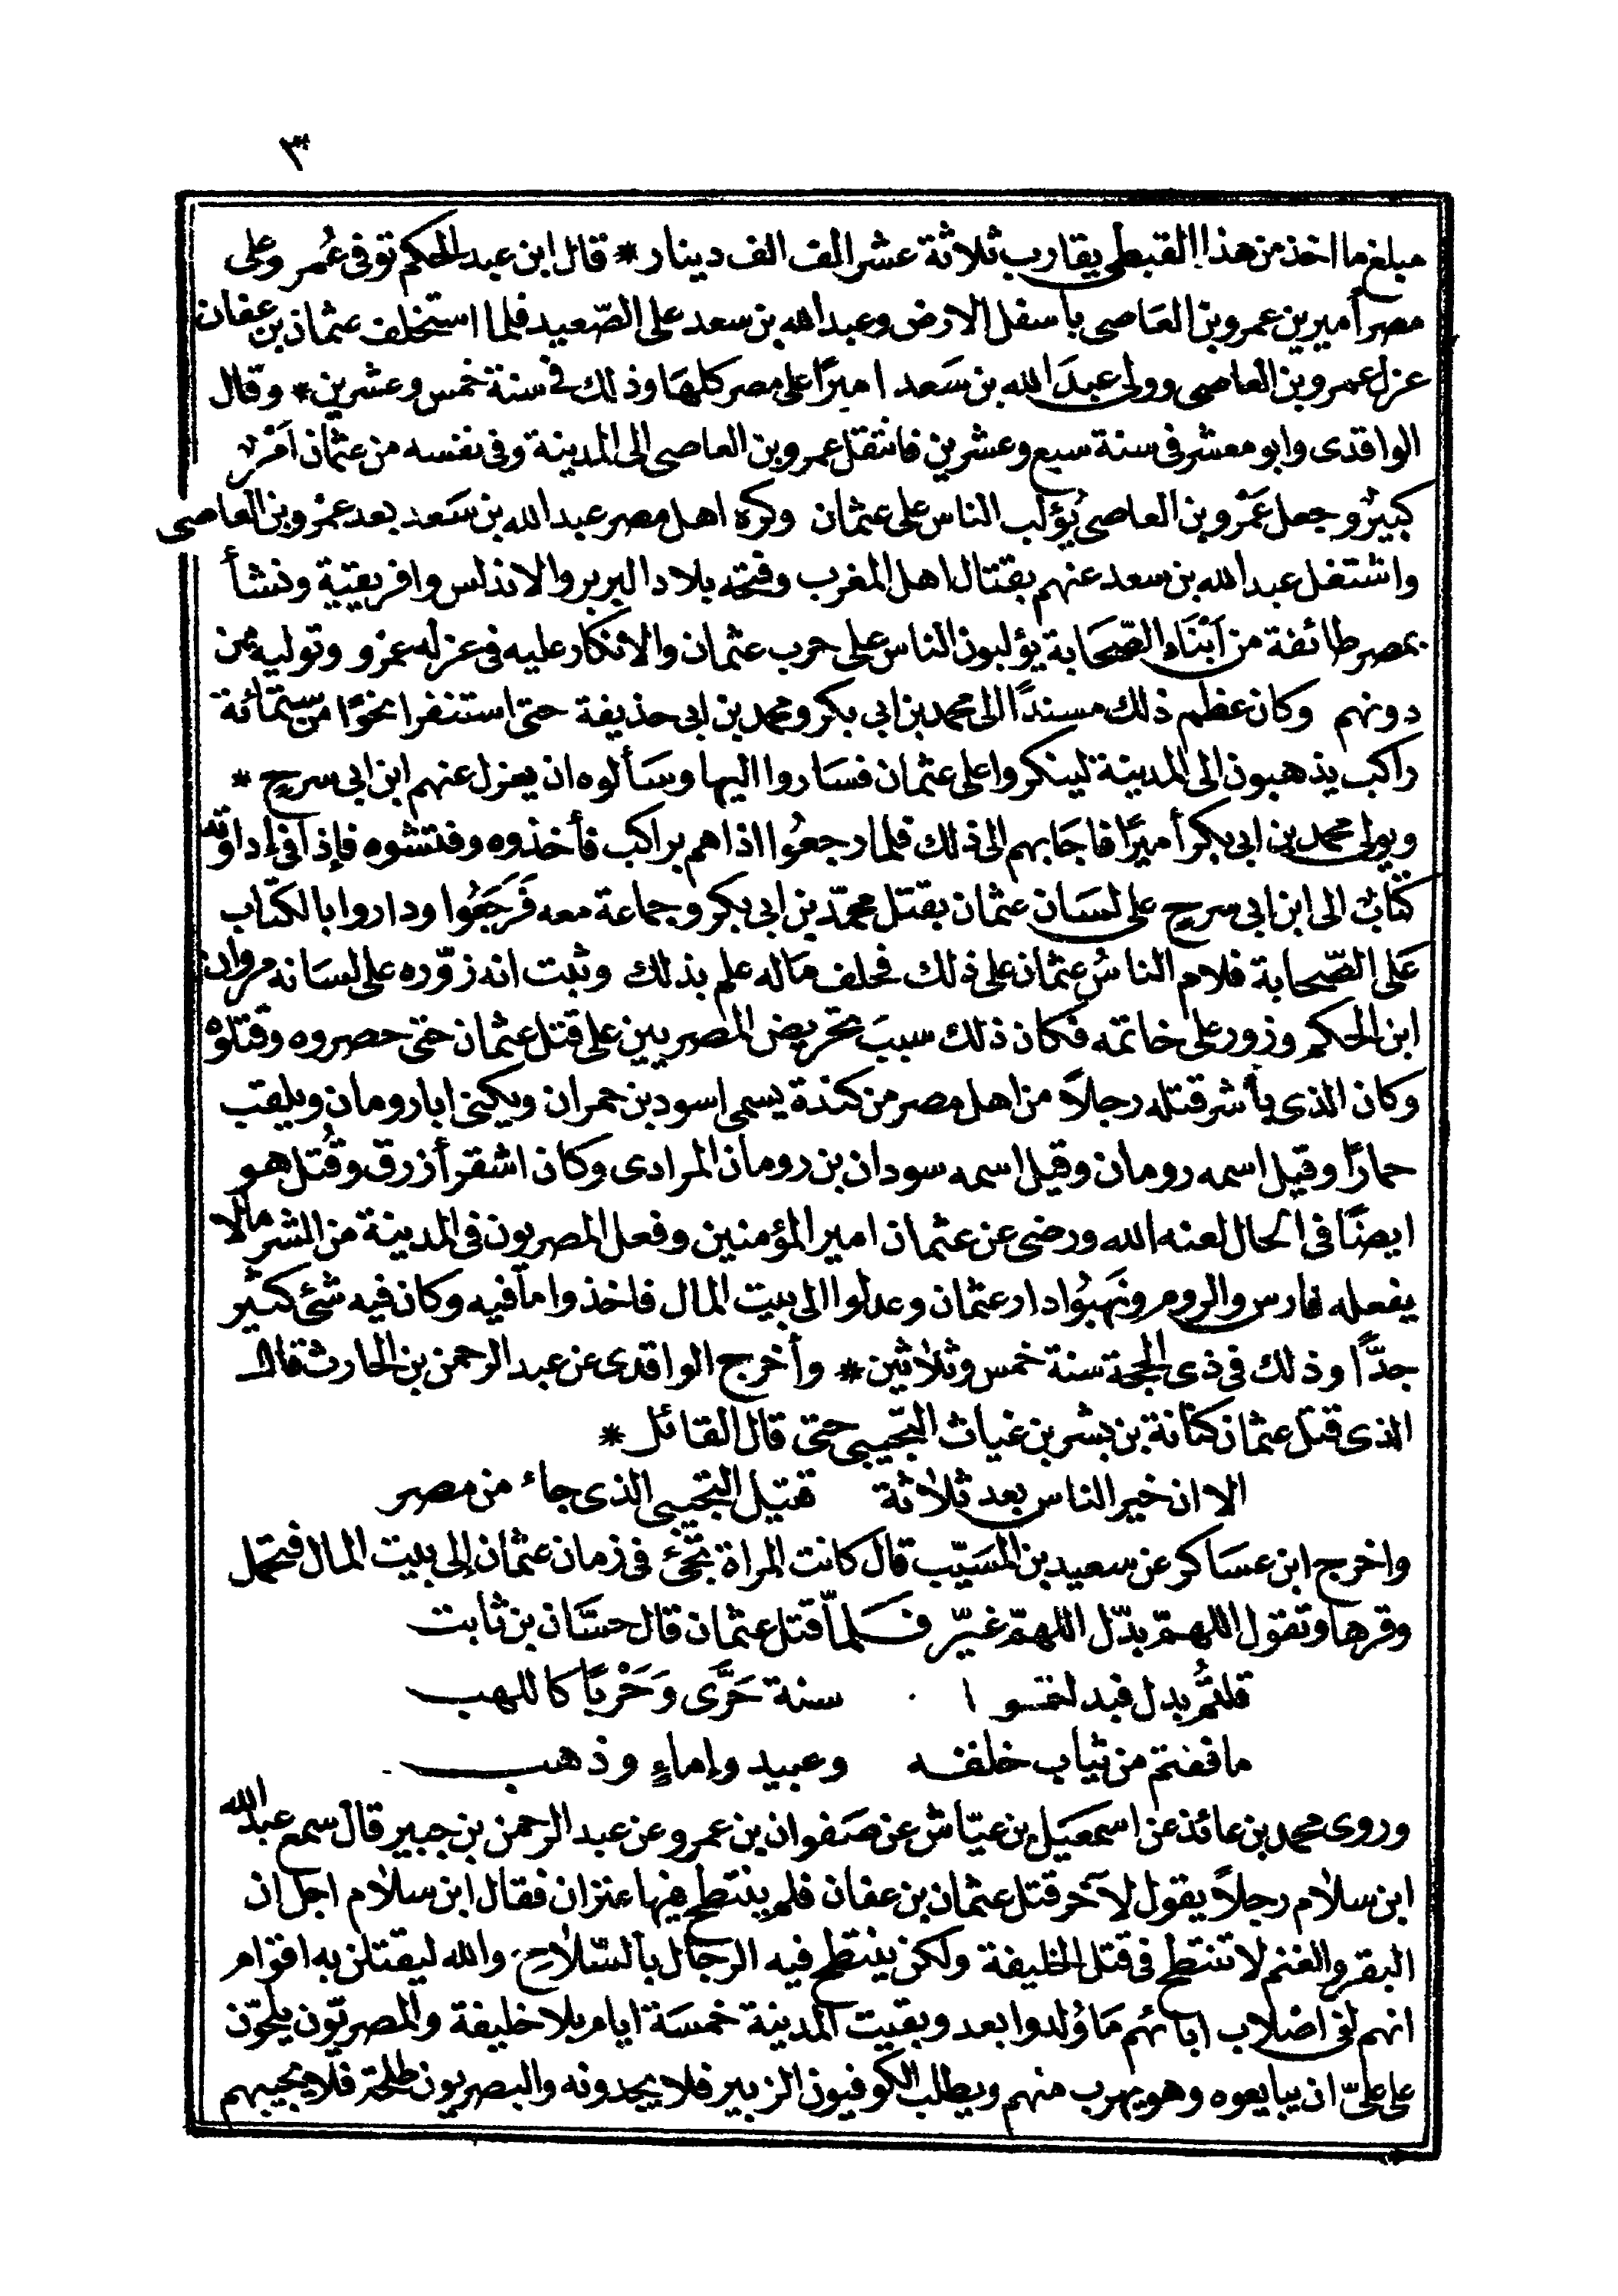 ٣
مبلغ ما اخذ من هذا القبطى يقارب ثلاثة عشر الف الف دينار * قال ابن عبد الحكم توفى عُمر وعلى
مصر أميرين عمرو بن العَاصى بأسفل الارض وعبد الله بن سعد على الصّعيد فلما استخلف عثمان بن عفان
عزل عمرو بن العاصى وولى عبدَ الله بن سَعد اميرًا على مصر كلهَا وذلك فى سنة خمس وعشرين * وقال
الواقدى وابو معشر فى سنة سبع وعشرين فانتقل عمرو بن العاصى الى المدينة وفى نفسه من عثمان اَمْرٌ
كبيرٌ وجعل عَمْرو بن العاصى يُؤلب الناس على عثمان وكره اهل مصر عبد الله بن سَعد بعد عمْرو بن العاصى
واشتغل عبد الله بن سعد عنهم بقتال اهل المغرب وفتحه بلاد البربر والاندلس وافريقيّة ونشأ
بمصر طائفة من اَبْنَاء الصّحَابة يؤلبون الناس على حرب عثمان والانكار عليه فى عزله عمْرو وتوليه مَن
دونهم وكان عظم ذلك مسندًا الى محمد بن ابى بكر ومحمد بن ابى حذيفة حتى استنفرا نحوًا من ستمائة
راكب يذهبون الى المدينة لينكروا على عثمان فسَاروا اليها وسَألوه ان يعزل عنهم ابن ابى سرحٍ *
ويولى محمد بن ابى بكر أميرًا فاجَابهم الى ذلك فلما رجعُوا اذا هم براكب فأخذوه وفتشوه فإذا فى إداوته
كتابٌ الى ابن ابى سرح على لسَان عثمان بقتل محمّد بن ابى بكر وجماعة معه فَرَجَعُوا وداروا بالكتاب
عَلى الصّحابة فلام الناسُ عثمان على ذلك فحلف مَاله علم بذلك وثبت انه زوّره على لسَانه مروان
ابن الحكم وزور على خاتمه فكان ذلك سببَ تحريض المصريين على قتل عثمان حتى حصروه وقتلوْه
وكان الذى بأشر قتله رجلاً من اهل مصر من كندة يسمى اسود بن حمران ويكنى ابا رومان ويلقب
حمارًا وقيل اسمه رومان وقيل اسمه سودان بن رومان المرادى وكان اشقر أزرق وقُتل هو
ايضًا فى الحال لعنه الله ورضى عن عثمان امير المؤمنين وفعل المصريون فى المدينة من الشر مالا
يفعله فارس والروم ونَهبُوا دار عثمان وعدلوا الى بيت المال فاخذوا ما فيه وكان فيه شئ كثير
جدًّا وذلك فى ذى الحجة سنة خمس وثلاثين * وأخرج الواقدى عن عبد الرحمن بن الحارث قال
الذى قتل عثمان كنانة بن بشر بن غياث التجيبى حتى قال القائل *
الا ان خير الناس بعد ثلاثة قتيل التجيبى الذى جاء من مصر
واخرج ابن عسَاكر عن سعيد بن المسَيّب قال كانت المراة تجئ فى زمان عثمان إلى بيت المال فتحمل
وقرها وتقول اللهمّ بدّل اللهمّ غيّر فلمّا قتل عثمان قال حسَّان بن ثابت
قلتمُ بدل فبدلتمو ا سنة حَرَّى وَحَرْبًا كاللهب
ما نقمتم من ثياب خلفه وعبيد وإماءٍ وذهب
وروى محمد بن عائذ عن اسمعيل بن عيّاش عن صَفوان بن عمرو عن عبد الرحمن بن جبير قال سمع عبد الله
ابن سلام رجلاً يقول لآخر قتل عثمان بن عفان فلم ينتطح فيها عنزان فقال ابن سلام اجل ان
البقر والغنم لا تنتطح فى قتل الخليفة ولكن ينتطح فيه الرجال بالسّلاح والله ليقتلن به اقوام
انهم لفى اصْلاب ابائهم مَا وُلدوا بعد وبقيت المدينة خمسَة ايام بلا خليفة والمصريّون يلحّون
على علىّ ان يبايعوه وهو يهرب منهم ويطلب الكوفيون الزبير فلا يجدونه والبصريون طلحة فلا يجيبهم